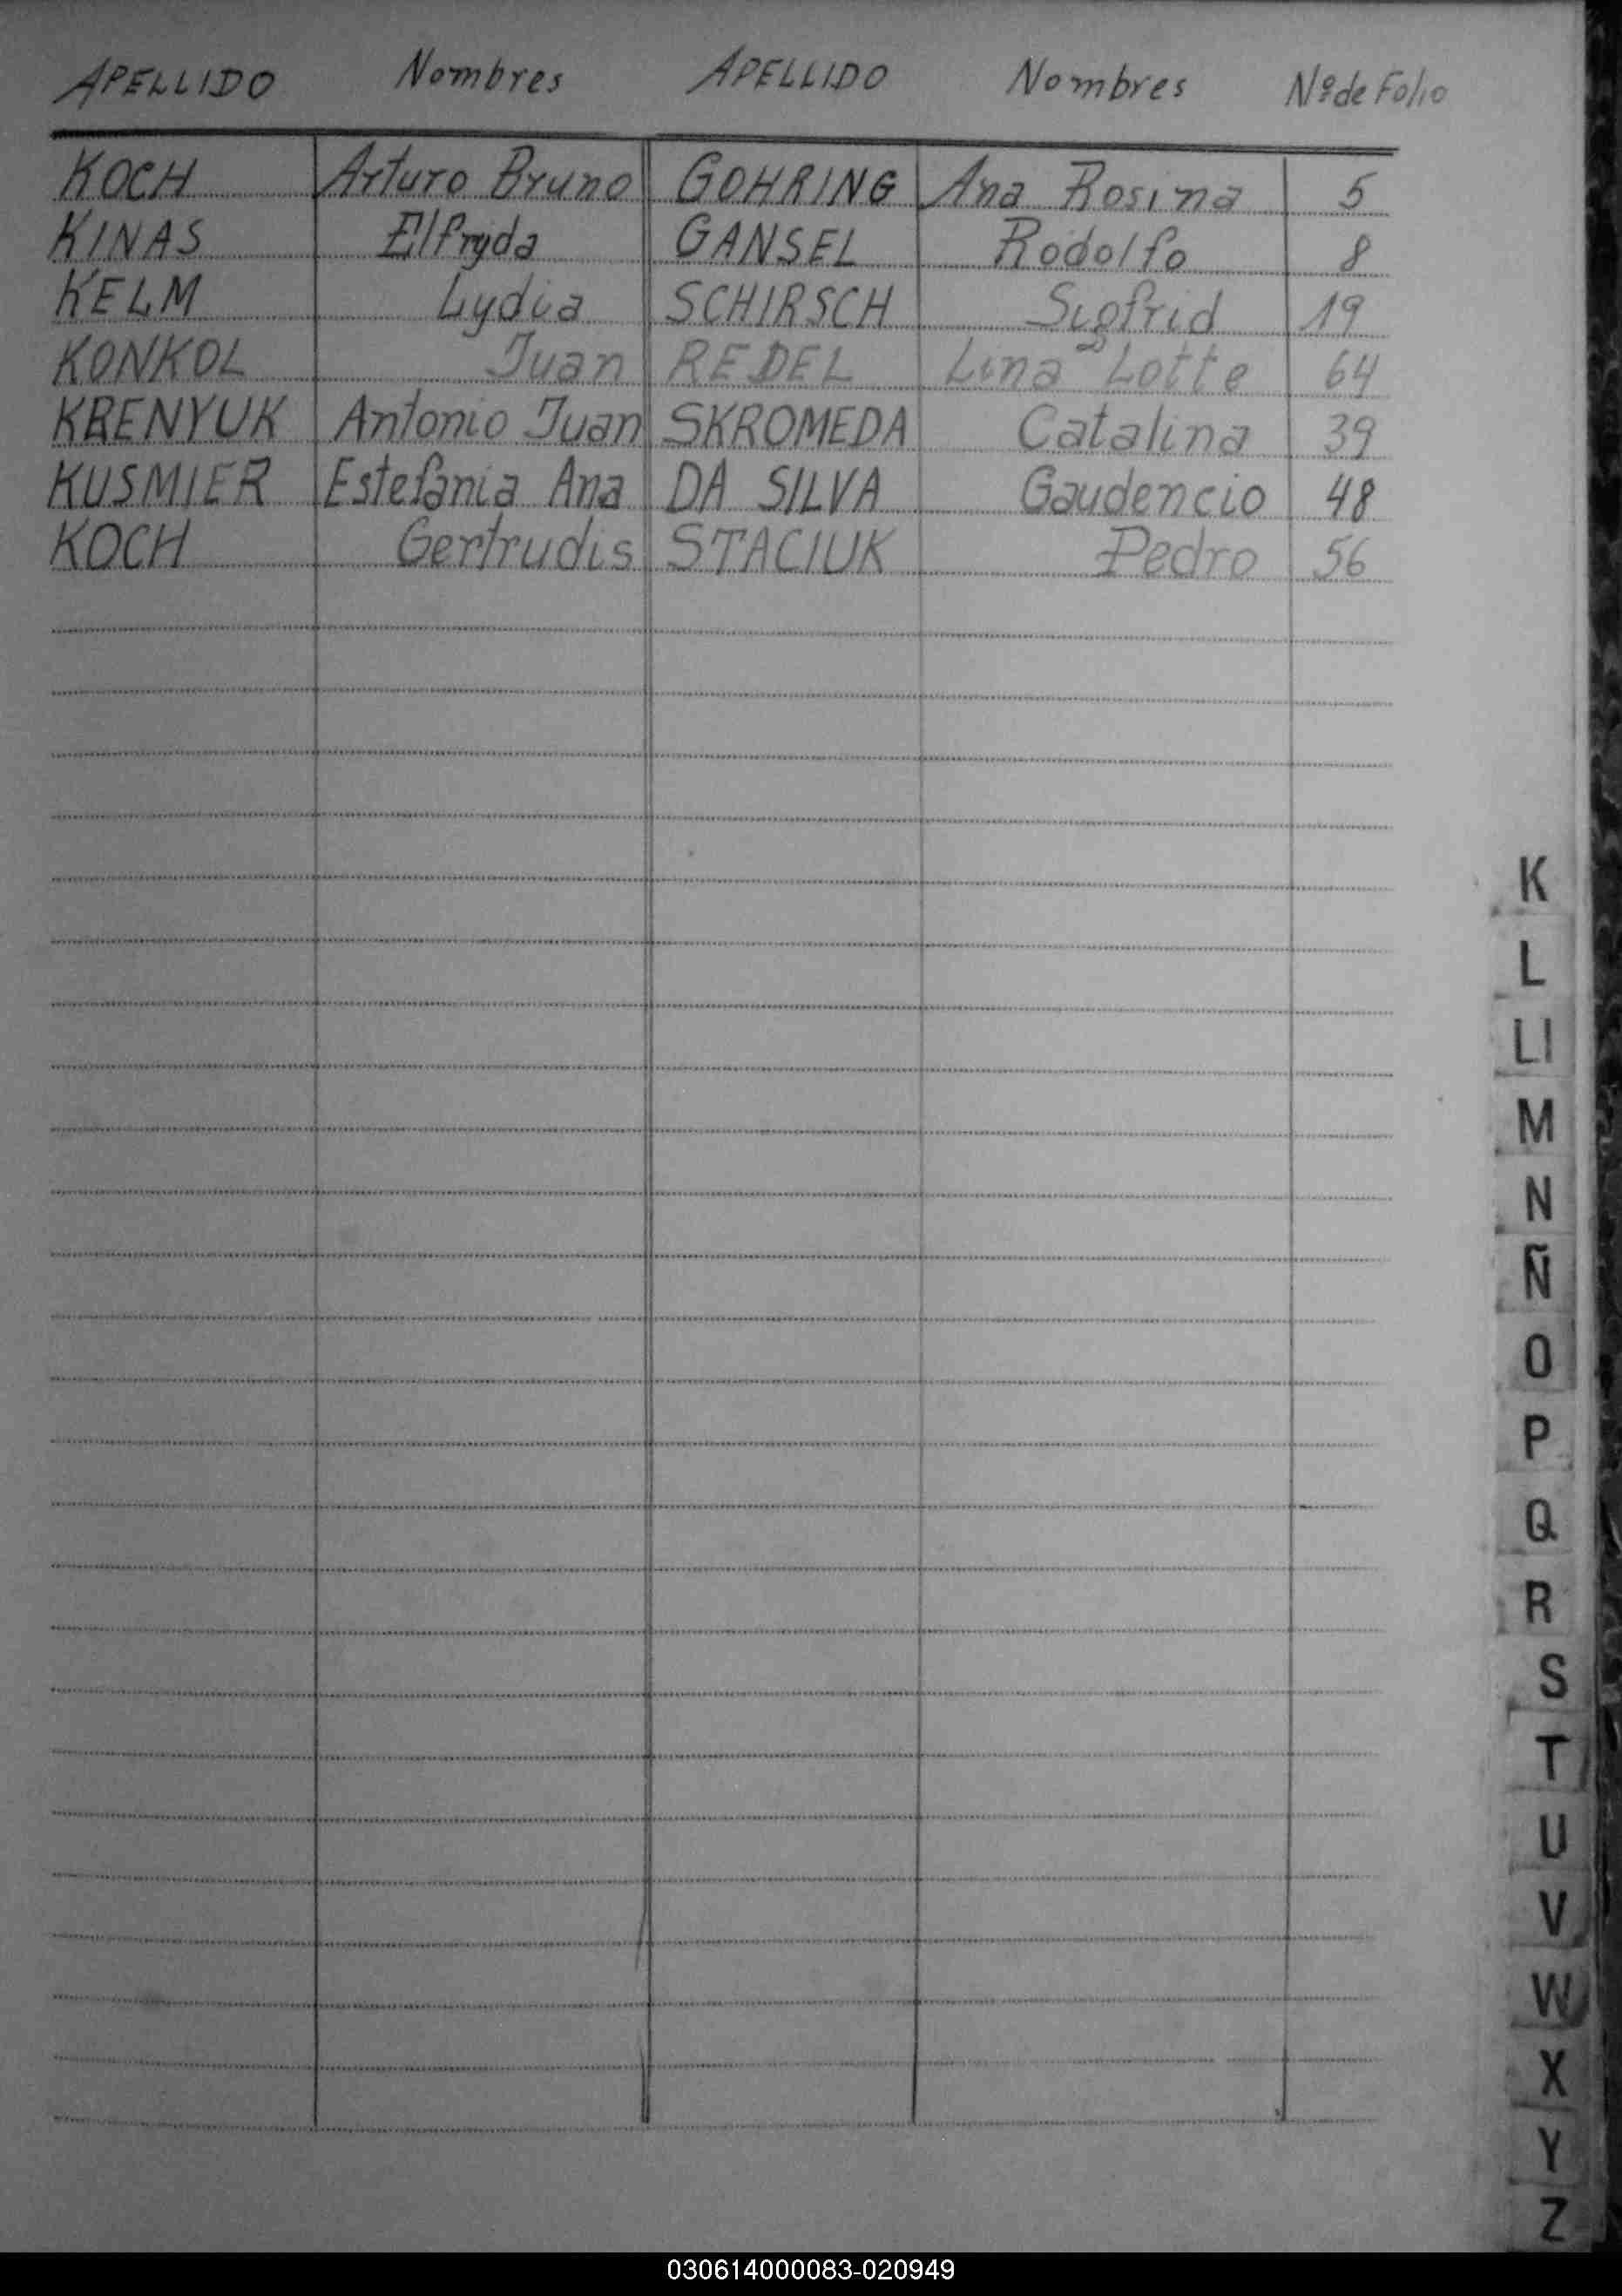 APELLIDO Nombres APELLIDO Nombres Nº de Folio
KOCH Arturo Bruno GOHRING Ana Rosina 5
KINAS Elfryda GANSEL Rodolfo 8
KELM Lydia SCHIRSCH Sigfrid 19
KONKOL Juan REDEL Lina Lotte 64
KRENYUK Antonio Juan SKROMEDA Catalina 39
KUSMIER Estefania Ana DA SILVA Gaudencio 48
KOCH Gertrudis STACIUK Pedro 56
K
L
Ll
M
N
Ñ
O
P
Q
R
S
T
U
V
W
X
Y
Z
030614000083-020949